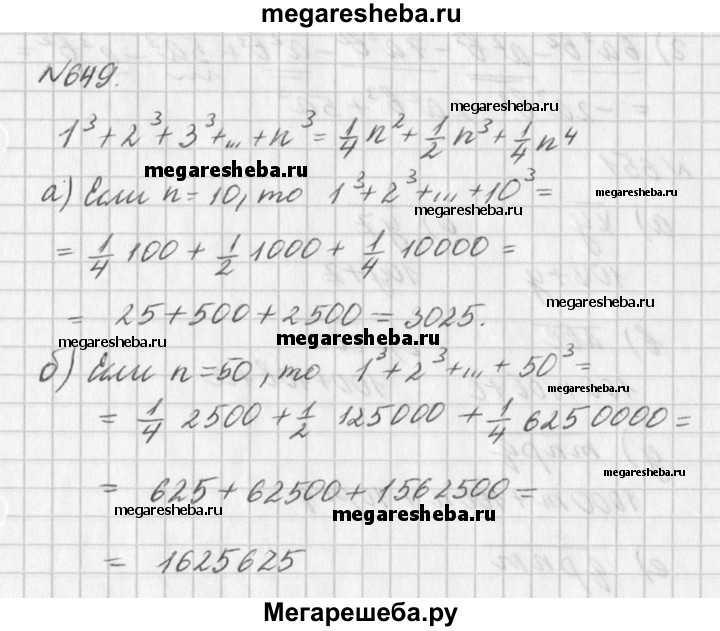 megaresheba.ru
№649.
1³+2³+3³+...+n³=1/4 n²+1/2 n³+1/4 n⁴
megaresheba.ru
megaresheba.ru
а) Если n=10, то 1³+2³+...+10³=
megaresheba.ru
megaresheba.ru
= 1/4 100 + 1/2 1000 + 1/4 10000 =
megaresheba.ru
= 25+500+2500=3025.
megaresheba.ru
megaresheba.ru
б) Если n=50, то 1³+2³+...+50³=
megaresheba.ru
= 1/4 2500 + 1/2 125000 + 1/4 6250000 =
megaresheba.ru
= 625+62500+1562500=
megaresheba.ru
megaresheba.ru
= 1625625
Мегарешеба.ру